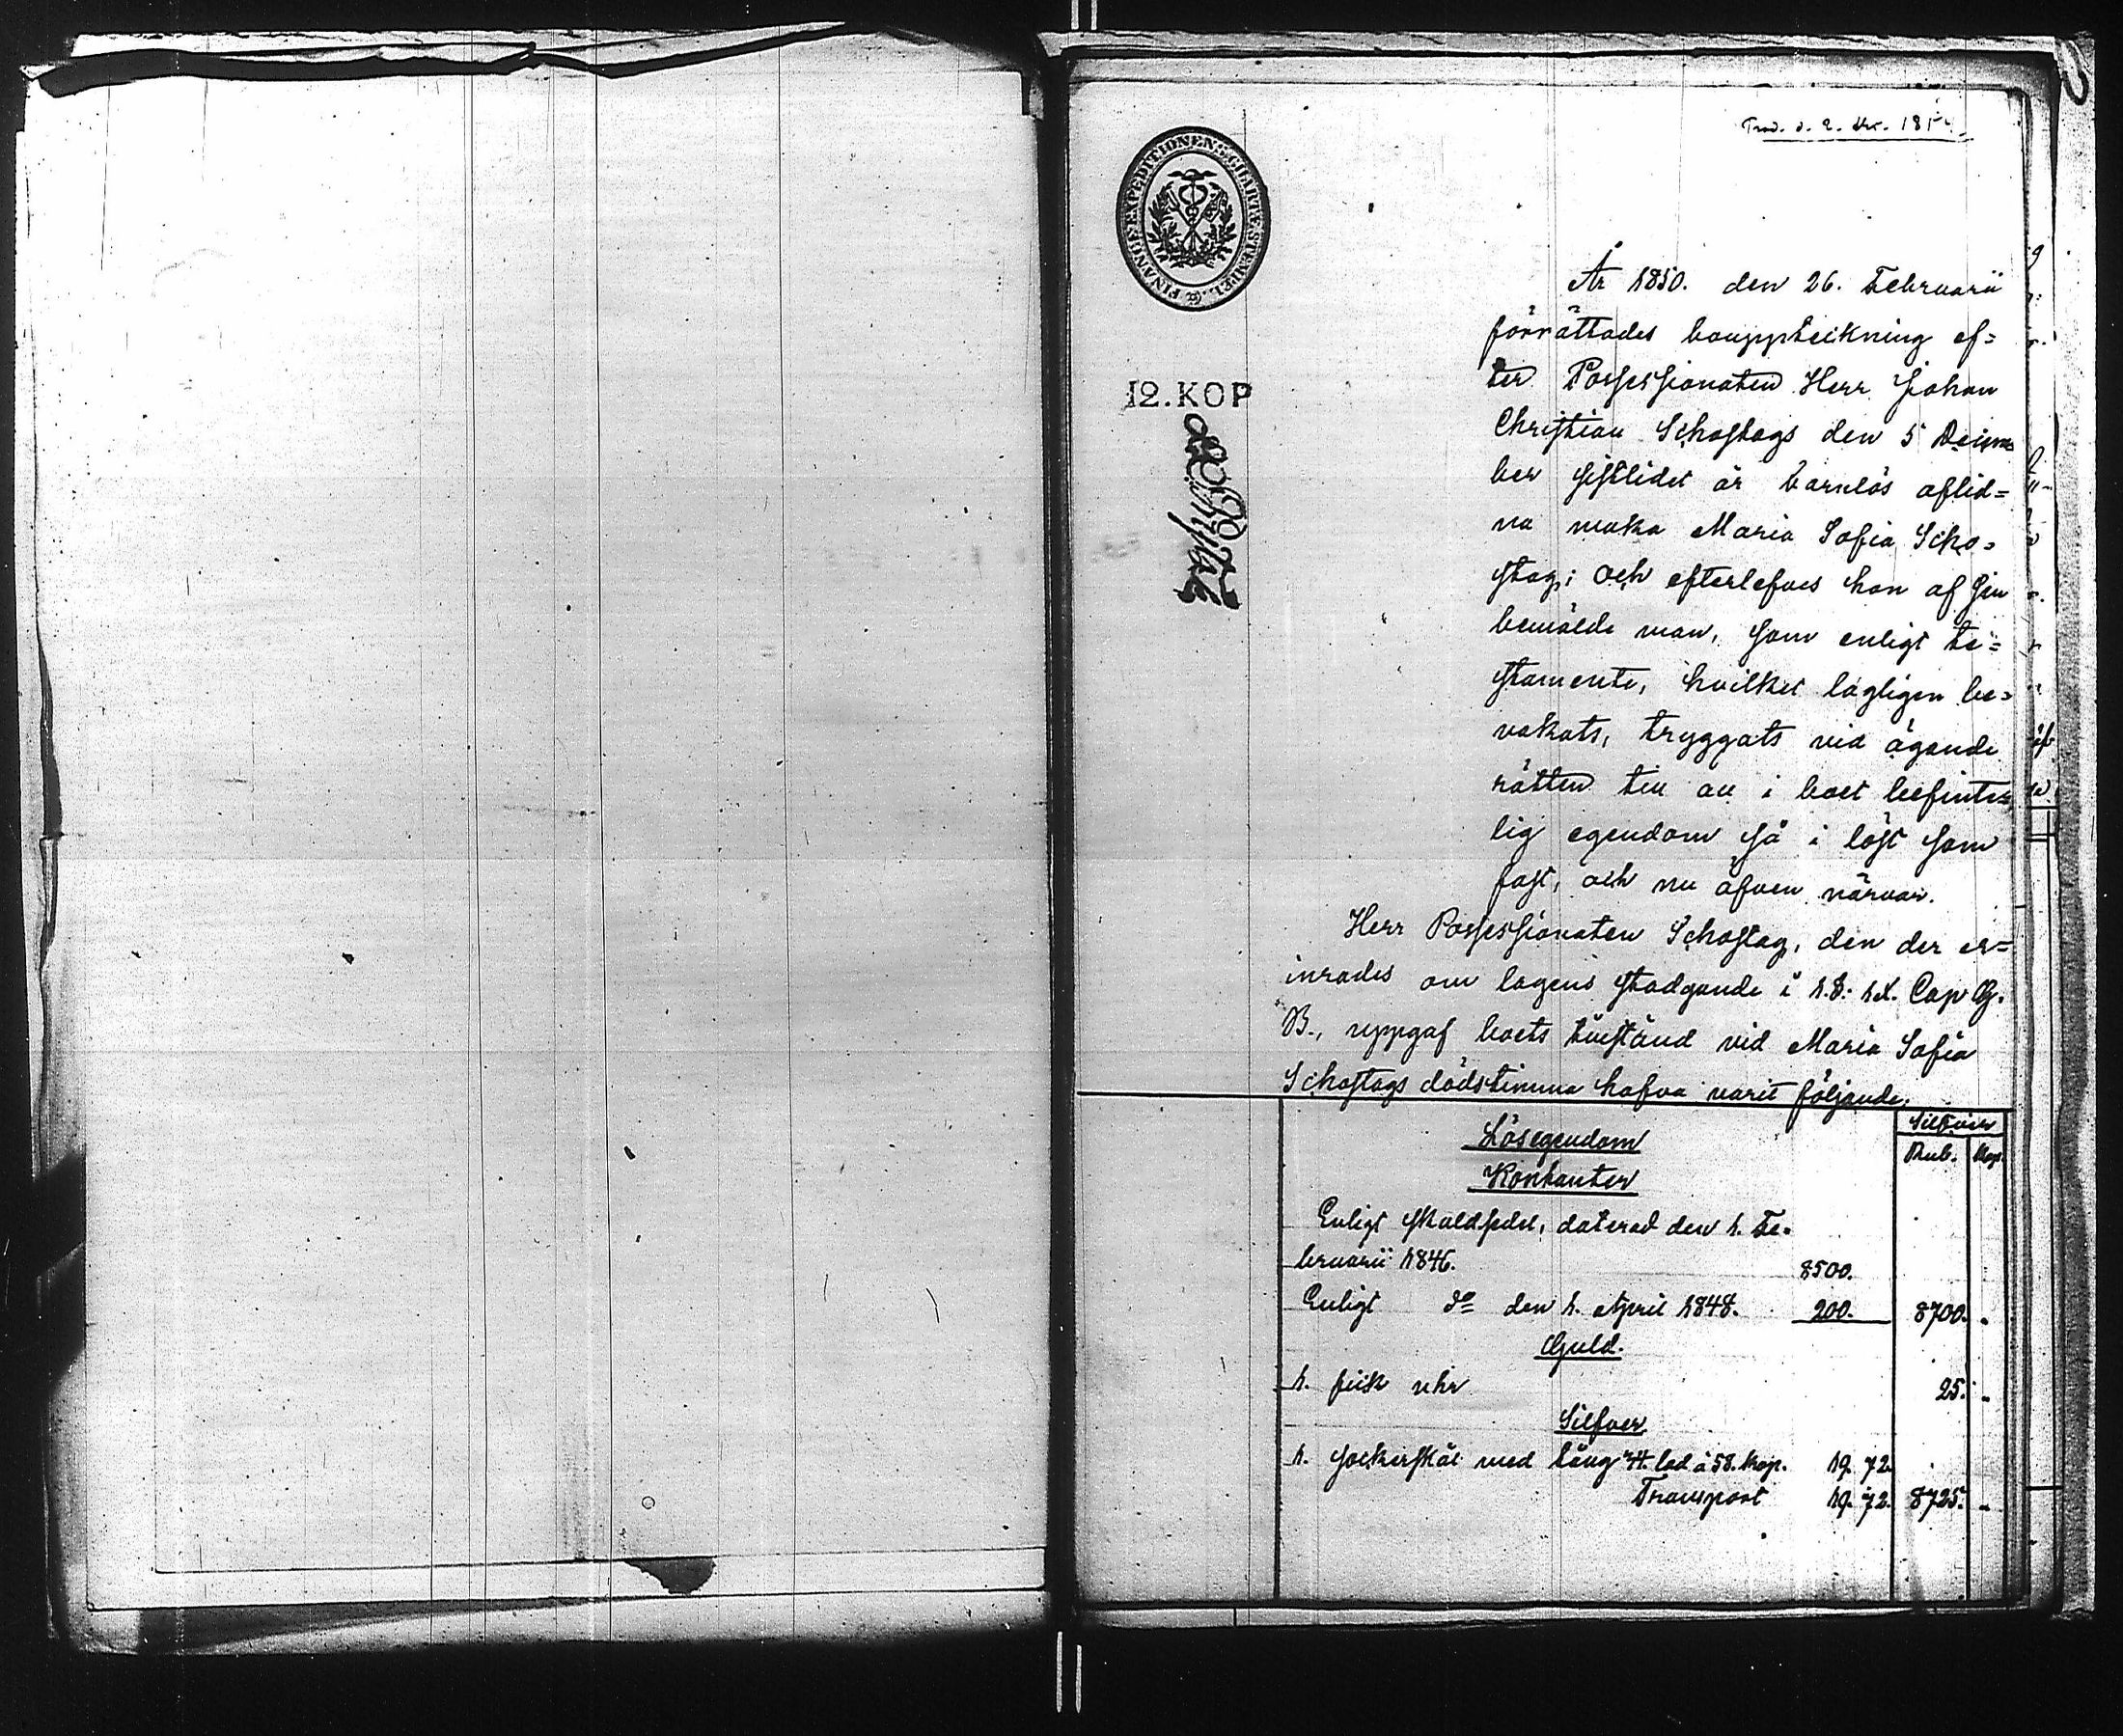 FINANCE EXPEDITIONENS CHARTÆ STEMPEL.
12. KOP
År 1850. den 26. Februarii
förrättades bouppteckning ef=
ter Possessionaten Herr Johan
Christian Schostags den 5 Decem
ber sistlidet år barnlös aflid=
na maka Maria Sofia Scho=
stag; och efterlefves hon af sin
bemälde man, som enligt te=
stamente, hvilket lagligen be=
vakats, tryggats vid ägande
rätten till all i boet befint=
lig egendom så i löst som
fast, och nu äfven närvar.
Herr Possessionaten Schostag, den der er=
inrades om lagens stadgande i 1. §. 9. Cap Æ.
B., uppgaf boets tillstånd vid Maria Sofia
Schostags dödstimma hafva varit följande:
Silfver
Rub. Kop.
Lösegendom
Kontanter
Enligt skuldsedel, daterad den 1. Fe=
bruarii 1846. 8500.
Enligt do den 1. April 1848. 200. 8700. -
Guld.
1. fick uhr 25. -
Silfver
1. sockerskål med tång 34. lod à 58. kop. 19. 72.
Transport 19. 72. 8725. -